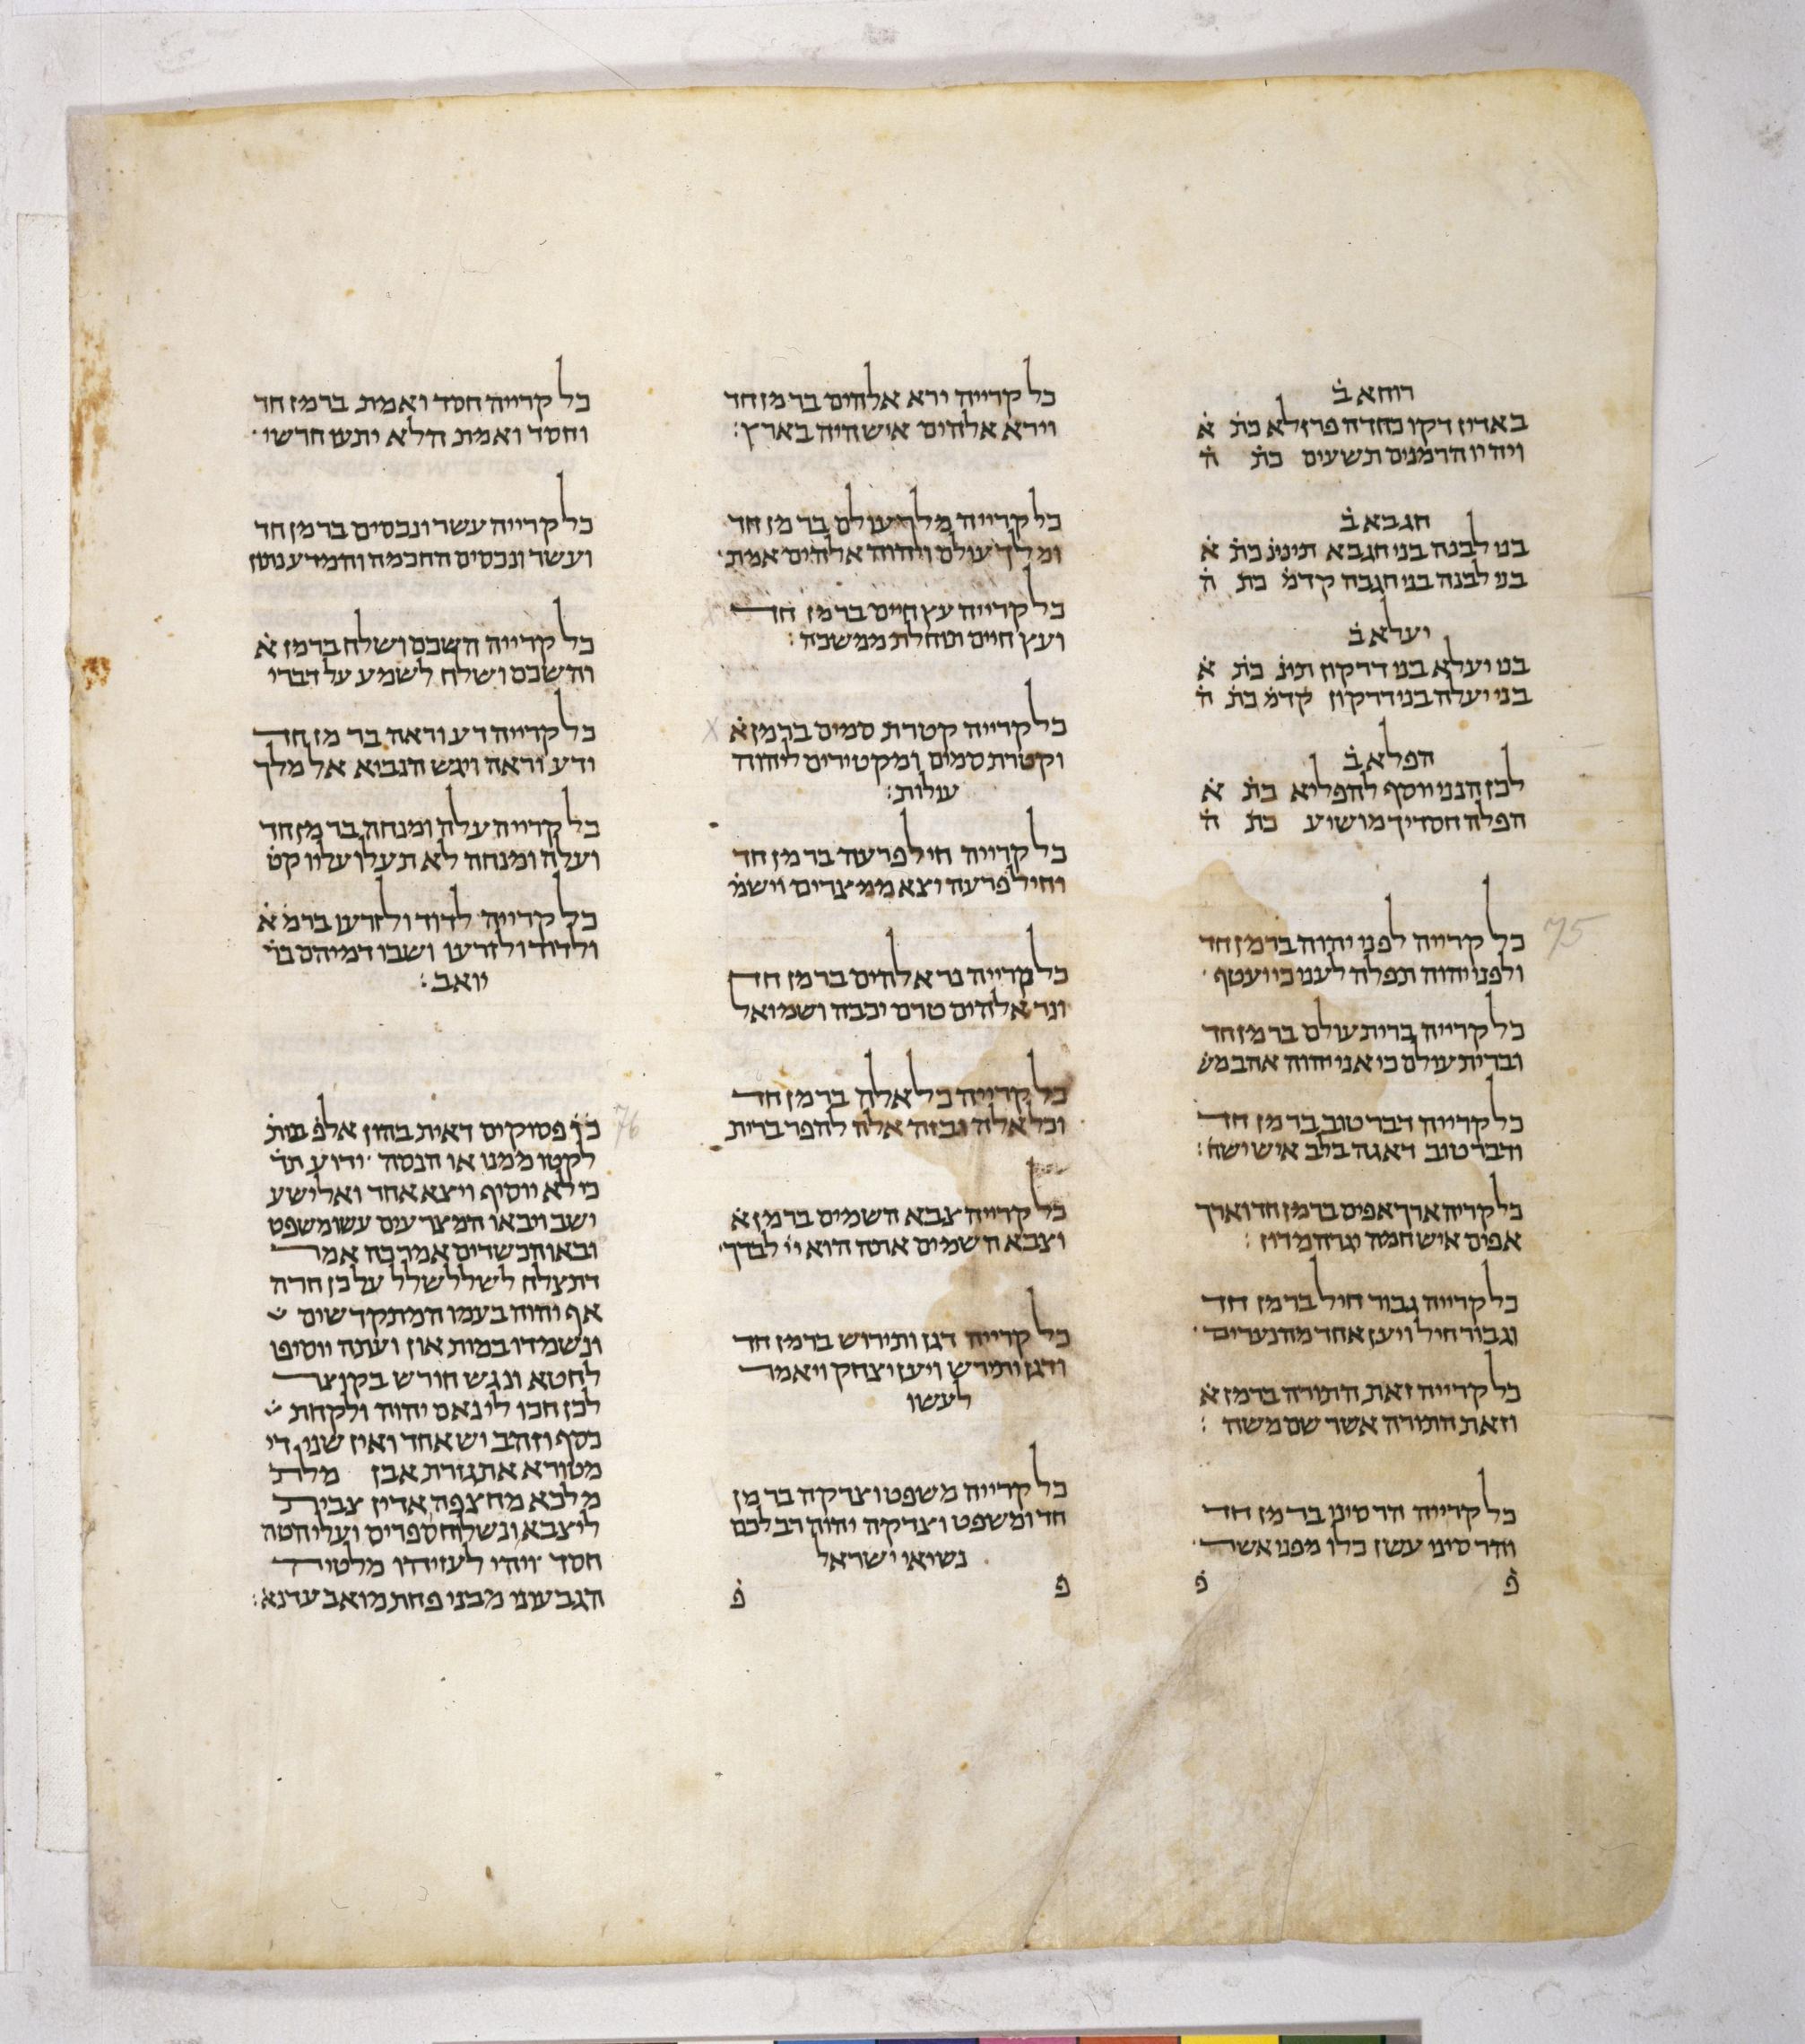 רוחא ב̇
באדין דקו כחדה פרזלא כת̇ א̇
ויהיו הרמנים תשעים כת̇ ה̇
חגבא ב̇
בני לבנה בני חגבא תינינ̇ כת̇ א̇
בני לבנה בני חגבה קדמ̇ כת̇ ה̇
יעלא ב̇
בני יעלא בני דרקון תינ̇ כת̇ א̇
בני יעלה בני דרקון קדמ̇ כת̇ ה̇
הפלא ב̇
לכן הנני יוסף להפליא כת̇ א̇
הפלה חסדיך מושיע כת̇ ה̇
כל קרייה לפני יהוה ברמז חד
ולפני יהוה תפלה לעני כי יעטף
כל קרייה ברית עולם ברמז חד
וברית עולם כי אני יהוה אהב מש̇
כל קרייה דבר טוב ברמז חד
ודבר טוב דאגה בלב איש ישח׃
כל קריה ארך אפים ברמז חד וארך
אפים איש חמה יגרה מדון׃
כל קרייה גבור חיל ברמז חד
וגבור חיל ויען אחד מהנערים
כל קרייה זאת התורה ברמז א̇
וזאת התורה אשר שם משה׃
כל קרייה הר סיני ברמז חד
והר סיני עשן כלו מפני אשר
פ̇ פ̇
כל קרייה ירא אלהים ברמז חד
וירא אלהים איש היה בארץ׃
כל קרייה מלך עולם ברמז חד
ומלך עולם ויהוה אלהים אמת
כל קרייה עץ חיים ברמז חד
ועץ חיים תוחלת ממשכה׃
כל קרייה קטרת סמים ברמז א̇
וקטרת סמים ומקטירים ליהוה
עולות׃
כל קרייה חיל פרעה ברמז חד
וחיל פרעה יצא ממצרים וישמ̇
כל קרייה נר אלהים ברמז חד
ונר אלהים טרם יכבה ושמואל
כל קרייה כל אלה ברמז חד
וכל אלה ובזה אלה להפר ברית
כל קרייה צבא השמים ברמז א̇
וצבא השמים אתה הוא יי̇ לבדך
כל קרייה דגן ותירוש ברמז חד
ודגן ותירש ויען יצחק ויאמר
לעשו
כל קרייה משפט וצדקה ברמז
חד ומשפט וצדקה יהוה רב לכם
נשיאי ישראל
פ̇ פ̇
כל קרייה חסד ואמת ברמז חד
וחסד ואמת הלא יתעו חרשי
כל קרייה עשר ונכסים ברמז חד
ועשר ונכסים החכמה והמדע נתון
כל קרייה השכם ושלח ברמז א̇
והשכם ושלח לשמע על דברי
כל קרייה דע וראה ברמז חד
ודע וראה ויגש הנביא אל מלך
כל קרייה עלה ומנחה ברמז חד
ועלה ומנחה לא תעלו עליו קט̇
כל קרייה לדוד ולזרעו ברמ̇ א̇
ולדוד ולזרעו ושבו דמיהם בר̇
יואב׃
כ̇ו̇ פסוקים דאית בהון אלפ̇ בית̇
לקטו ממנו או הנסה ידוע תד̇
כי לא יוסיף ויצא אחד ואלישע
ישב ויבאו המצרעים עשו משפט
ובאו הכשדים אמר כה אמר
דתצלח לשלל שלל על כן חרה
אף יהוה בעמו המתקדשים
ונשמדו במות און ועתה יוסיפו
לחטא ונגש חורש בקוצר
לכן חכו לי נאם יהוה ולקחת
כסף וזהב יש אחד ואין שני די
מטורא אתגזרת אבן מלת
מלכא מחצפה אדין צבית
ליצבא ונשלוח ספרים ועליהטה
חסד ויהי לעזיהו מלטיה
הגבעוני מבני פחת מואב עדנא׃
75
76